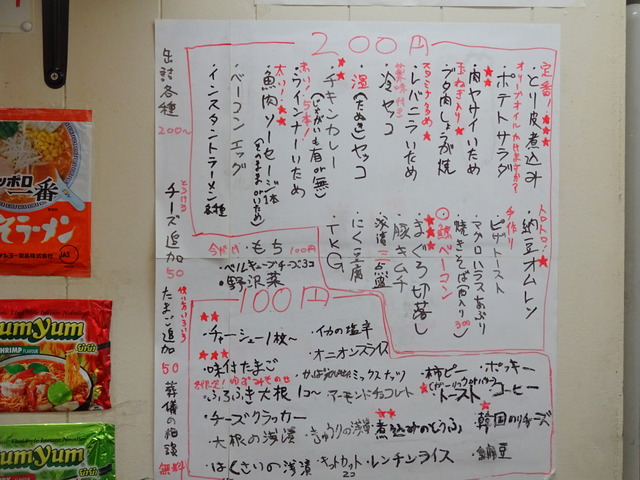 200円
定番!
・とり皮煮込み
・ポテトサラダ
・肉ヤサイいため
玉ねぎ入り
・ブタ肉しょうが焼
・レバニラいため
薬味付き
・冷ヤッコ
・温(たぬき)ヤッコ
・チキンカレー
(じゃがいも有or無)
赤い!5本!
・ウインナーいため
太い!
・魚肉ソーセージ1本
(そのままorいため)
・ベーコンエッグ
・インスタントラーメン各種
トロトロ!
・納豆オムレン
手作り
・ピザトースト
・マグロハラスあぶり
・焼きそば(肉入り)300
・鯨ベーコン
・まぐろ切落し
・豚キムチ
・浅漬三点盛
・にく豆腐
・TKG
・もち
100円
・ベルキューブチーズ3コ
・野沢菜
100円
・チャーシュー1枚〜
・味付たまご
・ふろふき大根 1コ〜
・チーズクラッカー
・大根の浅漬
・はくさいの浅漬
・イカの塩辛
・オニオンスライス
・ミックスナッツ
・アーモンドチョコレート
・きゅうりの浅漬
・キットカット2コ
・煮込みのとうふ
・レンチンライス
・柿ピー
・トースト
・ポッキー
・コーヒー
・韓国のりチーズ
・納豆
缶詰各種 200〜
チーズ追加 50
たまご追加 50
葬儀の相談 無料
サッポロ一番
みそラーメン
JAS
YumYum
SHRIMP FLAVOUR
YumYum